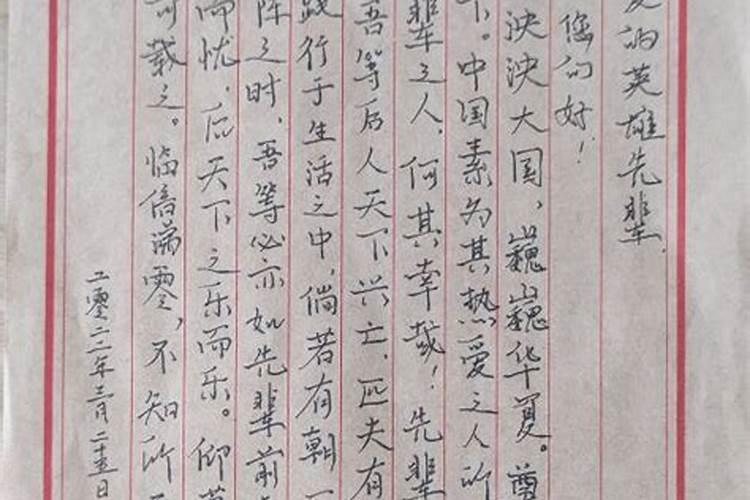 爱的英雄先辈，
您们好！
泱泱大国，巍巍华夏。尊
下。中国素为其热爱之人所
辈之人，何其幸哉！先辈
吾等后人天下兴亡，匹夫有
践行于生活之中，倘若有朝一
阵之时，吾等必亦如先辈前
而忧，后天下之乐而乐。仰
可载之。临倍涕零，不知所
二零二二年三月二十五日